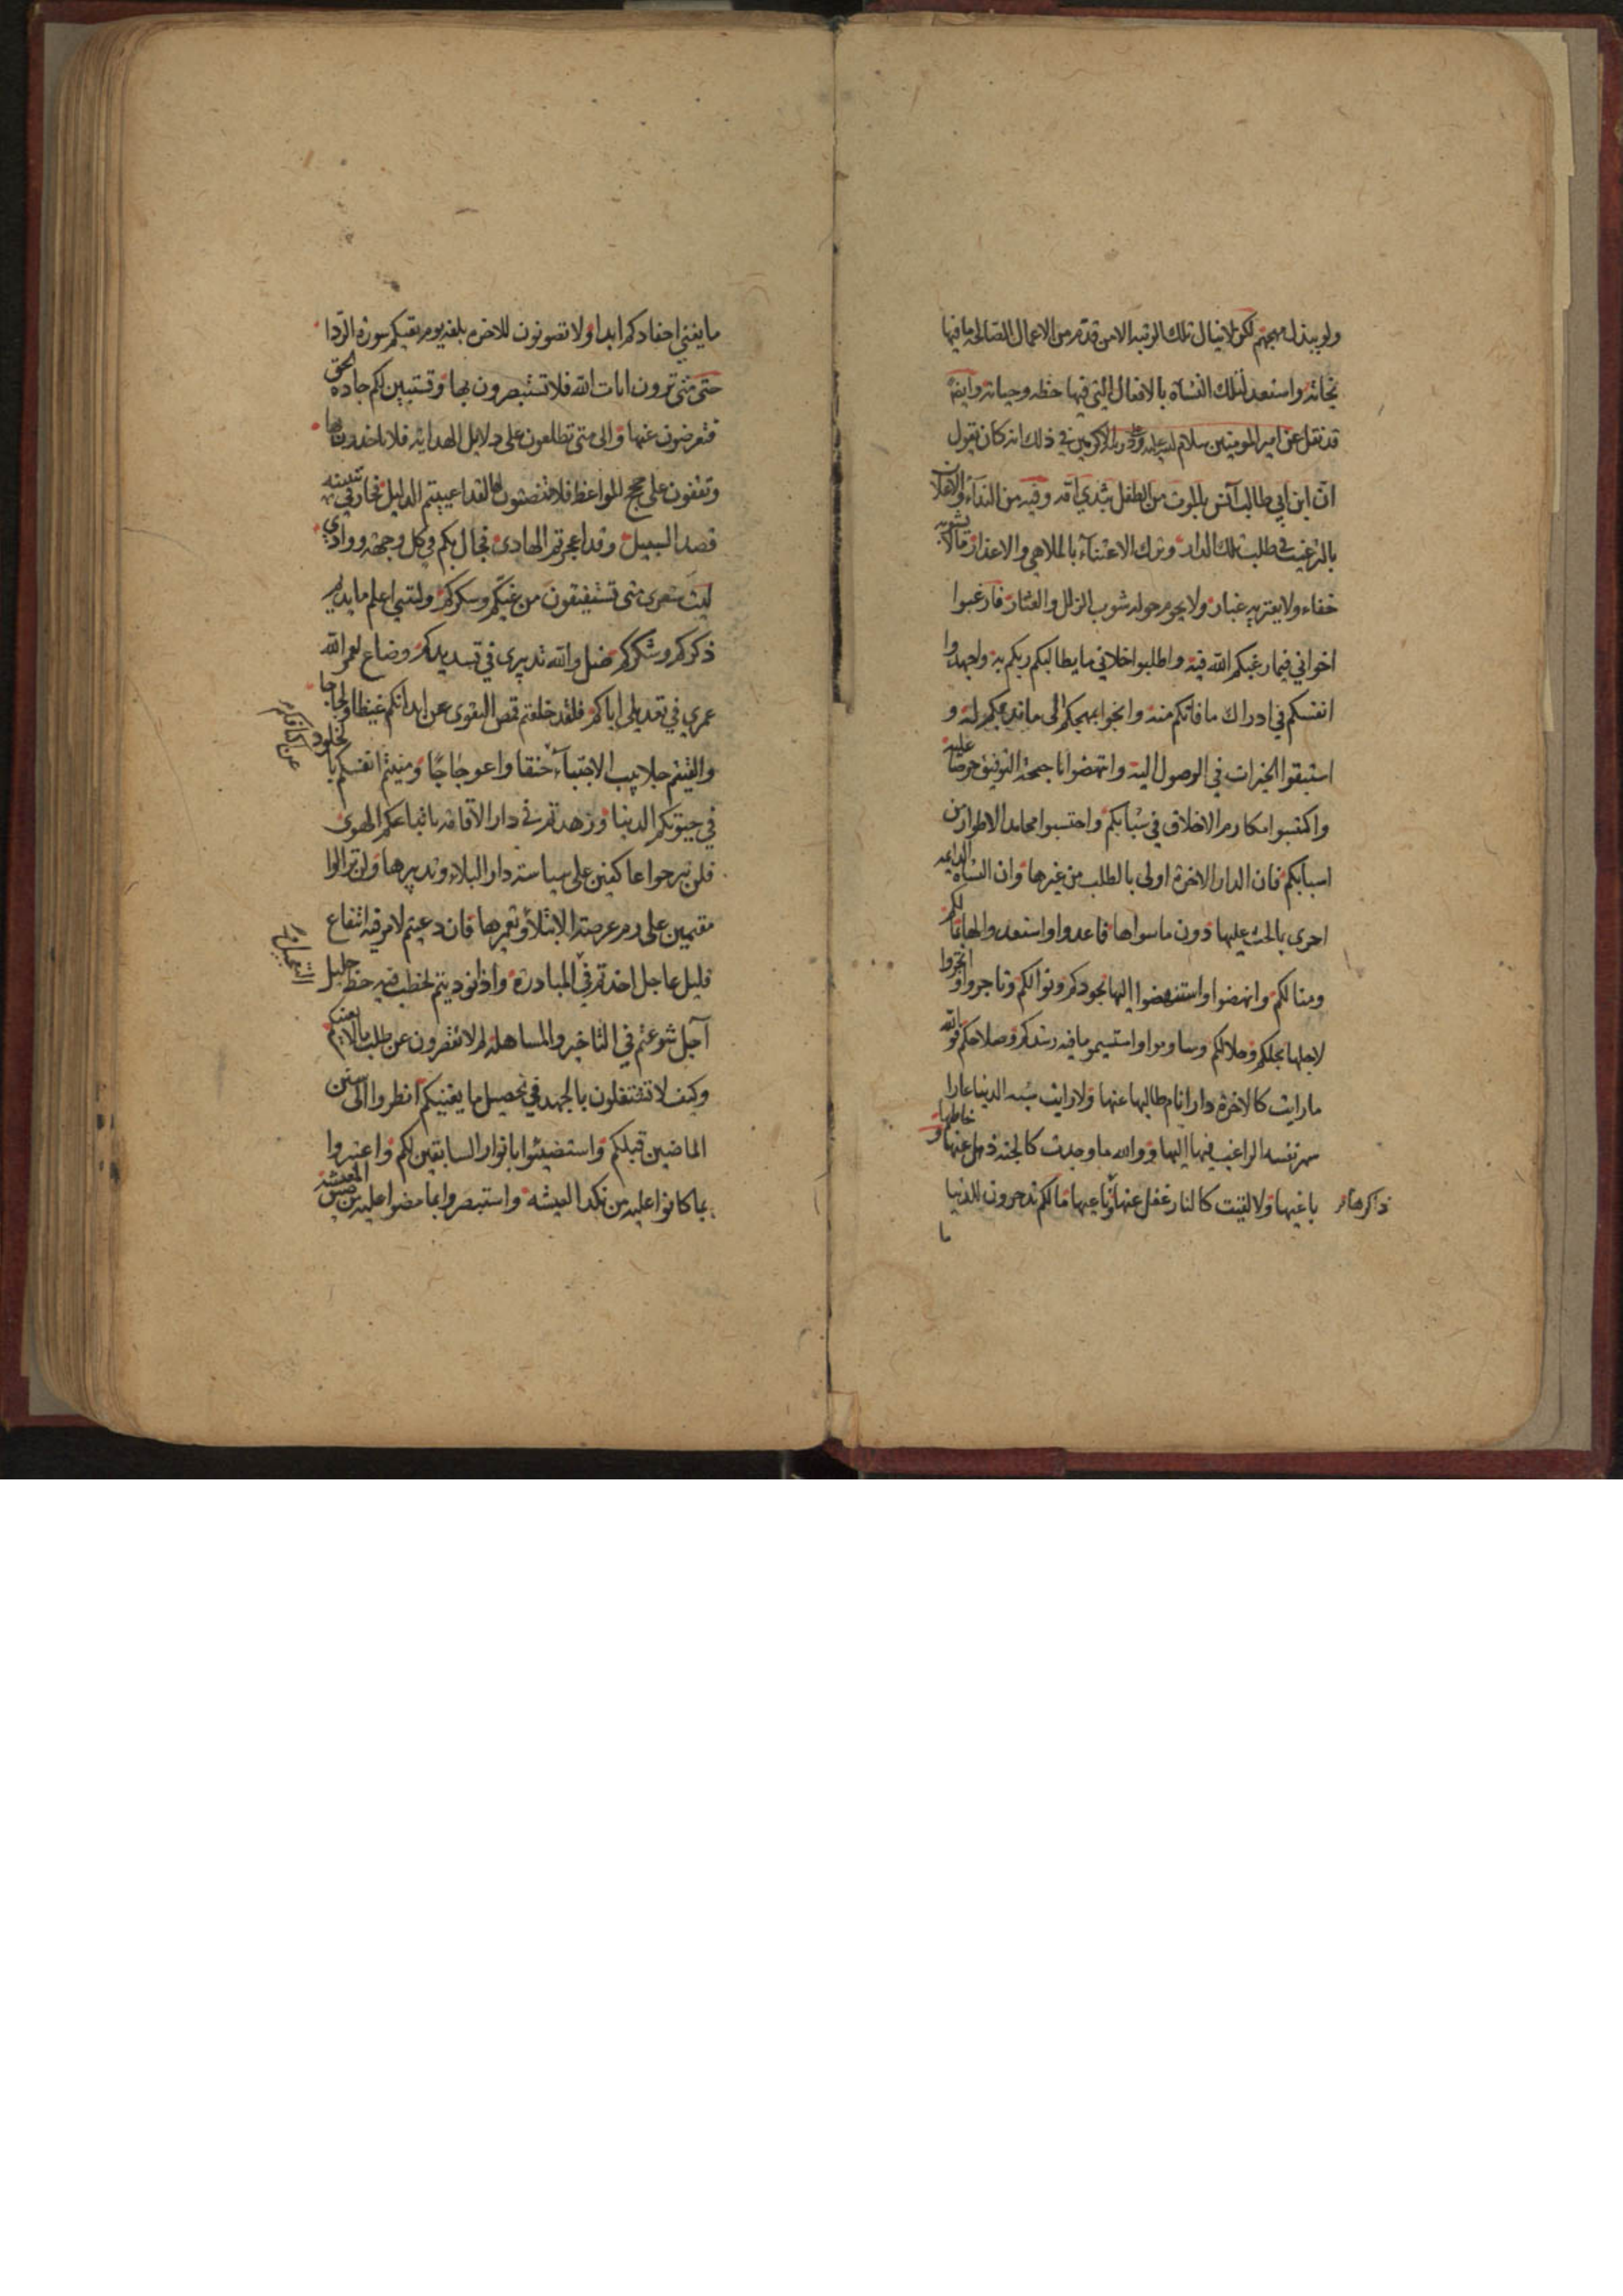 ولو ببذل مهجتهم لكن لا ينال تلك الرتبه الا من قدم من الاعمال الصالحه ما فيها
نجاته واستعد لتلك النشاة بالافعال التي فيها حظه وحياته وايضا
قد نقل عن امير المومنين سلام عليه في ذلك انه كان يقول
ان ابن ابي طالب آنس بالموت من الطفل بثدي امه وفيه من النداء والاعلان
بالترغيب في طلب تلك الدار وترك الاعتناء بالملاهي والاعذار ما لا يشوبه
خفاء ولا يعتريه غبار ولا يحوم حوله شوب الزلل والعثار فارغبوا
اخواني فيما رغبكم الله فيه واطلبوا خلاني ما يطالبكم ربكم به واجهدوا
انفسكم في ادراك ما فاتكم منه وانحوا بمهجكم الى ما ندبكم له و
استبقوا الخيرات في الوصول اليه وانهضوا باجنحة التوفيق حرصا عليه
واكتسبوا مكارم الاخلاق في شبابكم واحتسبوا محامد الاطوار من
اسبابكم فان الدار الاخرة اولى بالطلب من غيرها وان النشاه
احرى بالحث عليها دون ما سواها فاعدوا واستعدوا لها ما لكم
ومنالكم وانهضوا واستنهضوا اليها بجودكم ونوالكم وتاجروا واتجروا
لاجلها بجلكم وحلالكم وساوموا واستسيموا ما فيه رشدكم وصلاحكم فوالله
ما رايت كالاخرة دارا نام طالبها عنها ولا رايت شبه الدنيا عارا
سهر نفسه الراغب فيها اليها ووالله ما وجدت كالجنه ذهل عنها خاطبها و
باغيها ولا لقيت كالنار غفل عنها ما لكم تدخرون للدنيا
ذاكرها
ما
ما يغني احفادكم ابدا ولا تصونون للاخره بلغه يوم يقيكم سورة الردا
حتى متى ترون ايات الله فلا تستبصرون بها وتستبين لكم جادة الحق
فتعرضون عنها والى متى تطلعون على دلايل الهدايه فلا تاخذون بها
وتقفون على حجج المواعظ فلا تنصتون لها لقد اعييتم الدليل فحار في تعيينه
قصد السبيل وقد اعجزتم الهادي فجال بكم في كل وجهه ووادي
ليت شعري متى تستفيقون من غيكم وسكركم وليتني اعلم ما يديم
ذكركم وشكركم ضل والله تدبيري في تسديدكم وضاع لعمر الله
عمري في تعديلي اياكم فلقد خلعتم قمص التقوى عن ابدانكم غيظا ولجاجا
والقيتم جلابيب الاجتباء حنقا واعوجاجا ومنيتم انفسكم بالخلود
في حيوتكم الدنيا وزهدتم في دار الاقامه باتباعكم الهوى
فلن تبرحوا عاكفين على سياسة دار البلاء وتدبيرها ولن تزالوا
مقيمين على رم عرصة الابتلاء وتعميرها فان دعيتم لامر فيه انتفاع
قليل عاجل اخذتم في المبادرة واذا نوديتم لخطب فيه حظ جليل
آجل شرعتم في التاخير والمساهله لم لا تقصرون عن طلب ما لا يعنيكم
وكيف لا تشتغلون بالجهد في تحصيل ما يعنيكم انظروا الى سنن
الماضين قبلكم واستضيئوا بانوار السابقين لكم واعتبروا
بما كانوا عليه من نكد العيشه واستبصروا بما مضوا عليه من